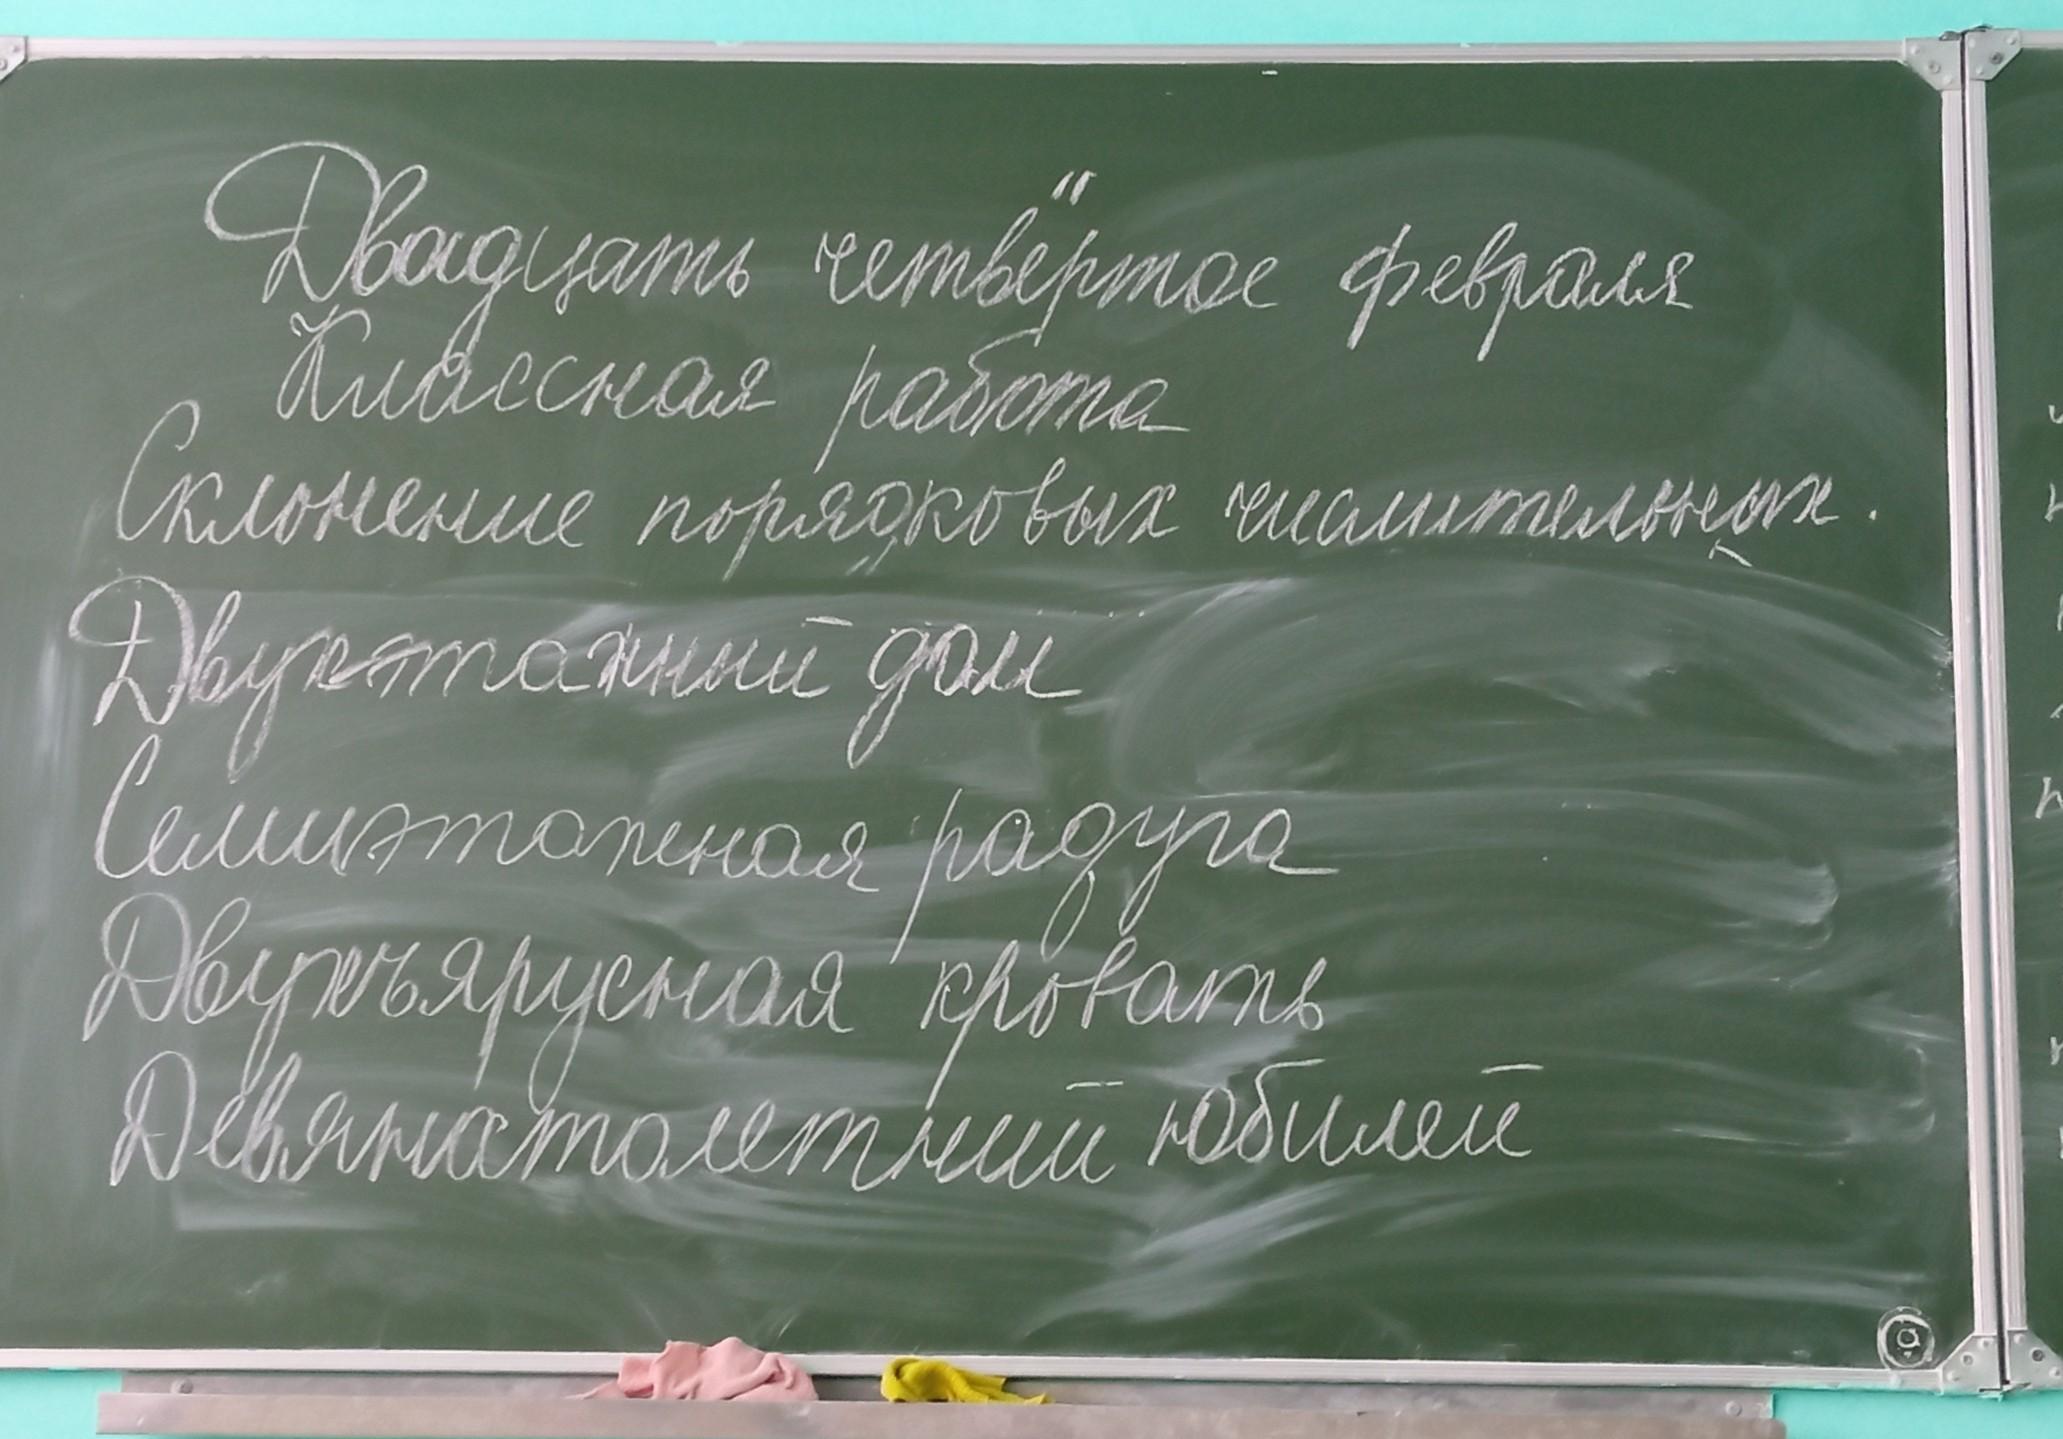 Двадцать четвёртое февраля
Классная работа
Склонение порядковых числительных.
Двухэтажный дом
Семиэтажная радуга
Двухъярусная кровать
Девяностолетний юбилей